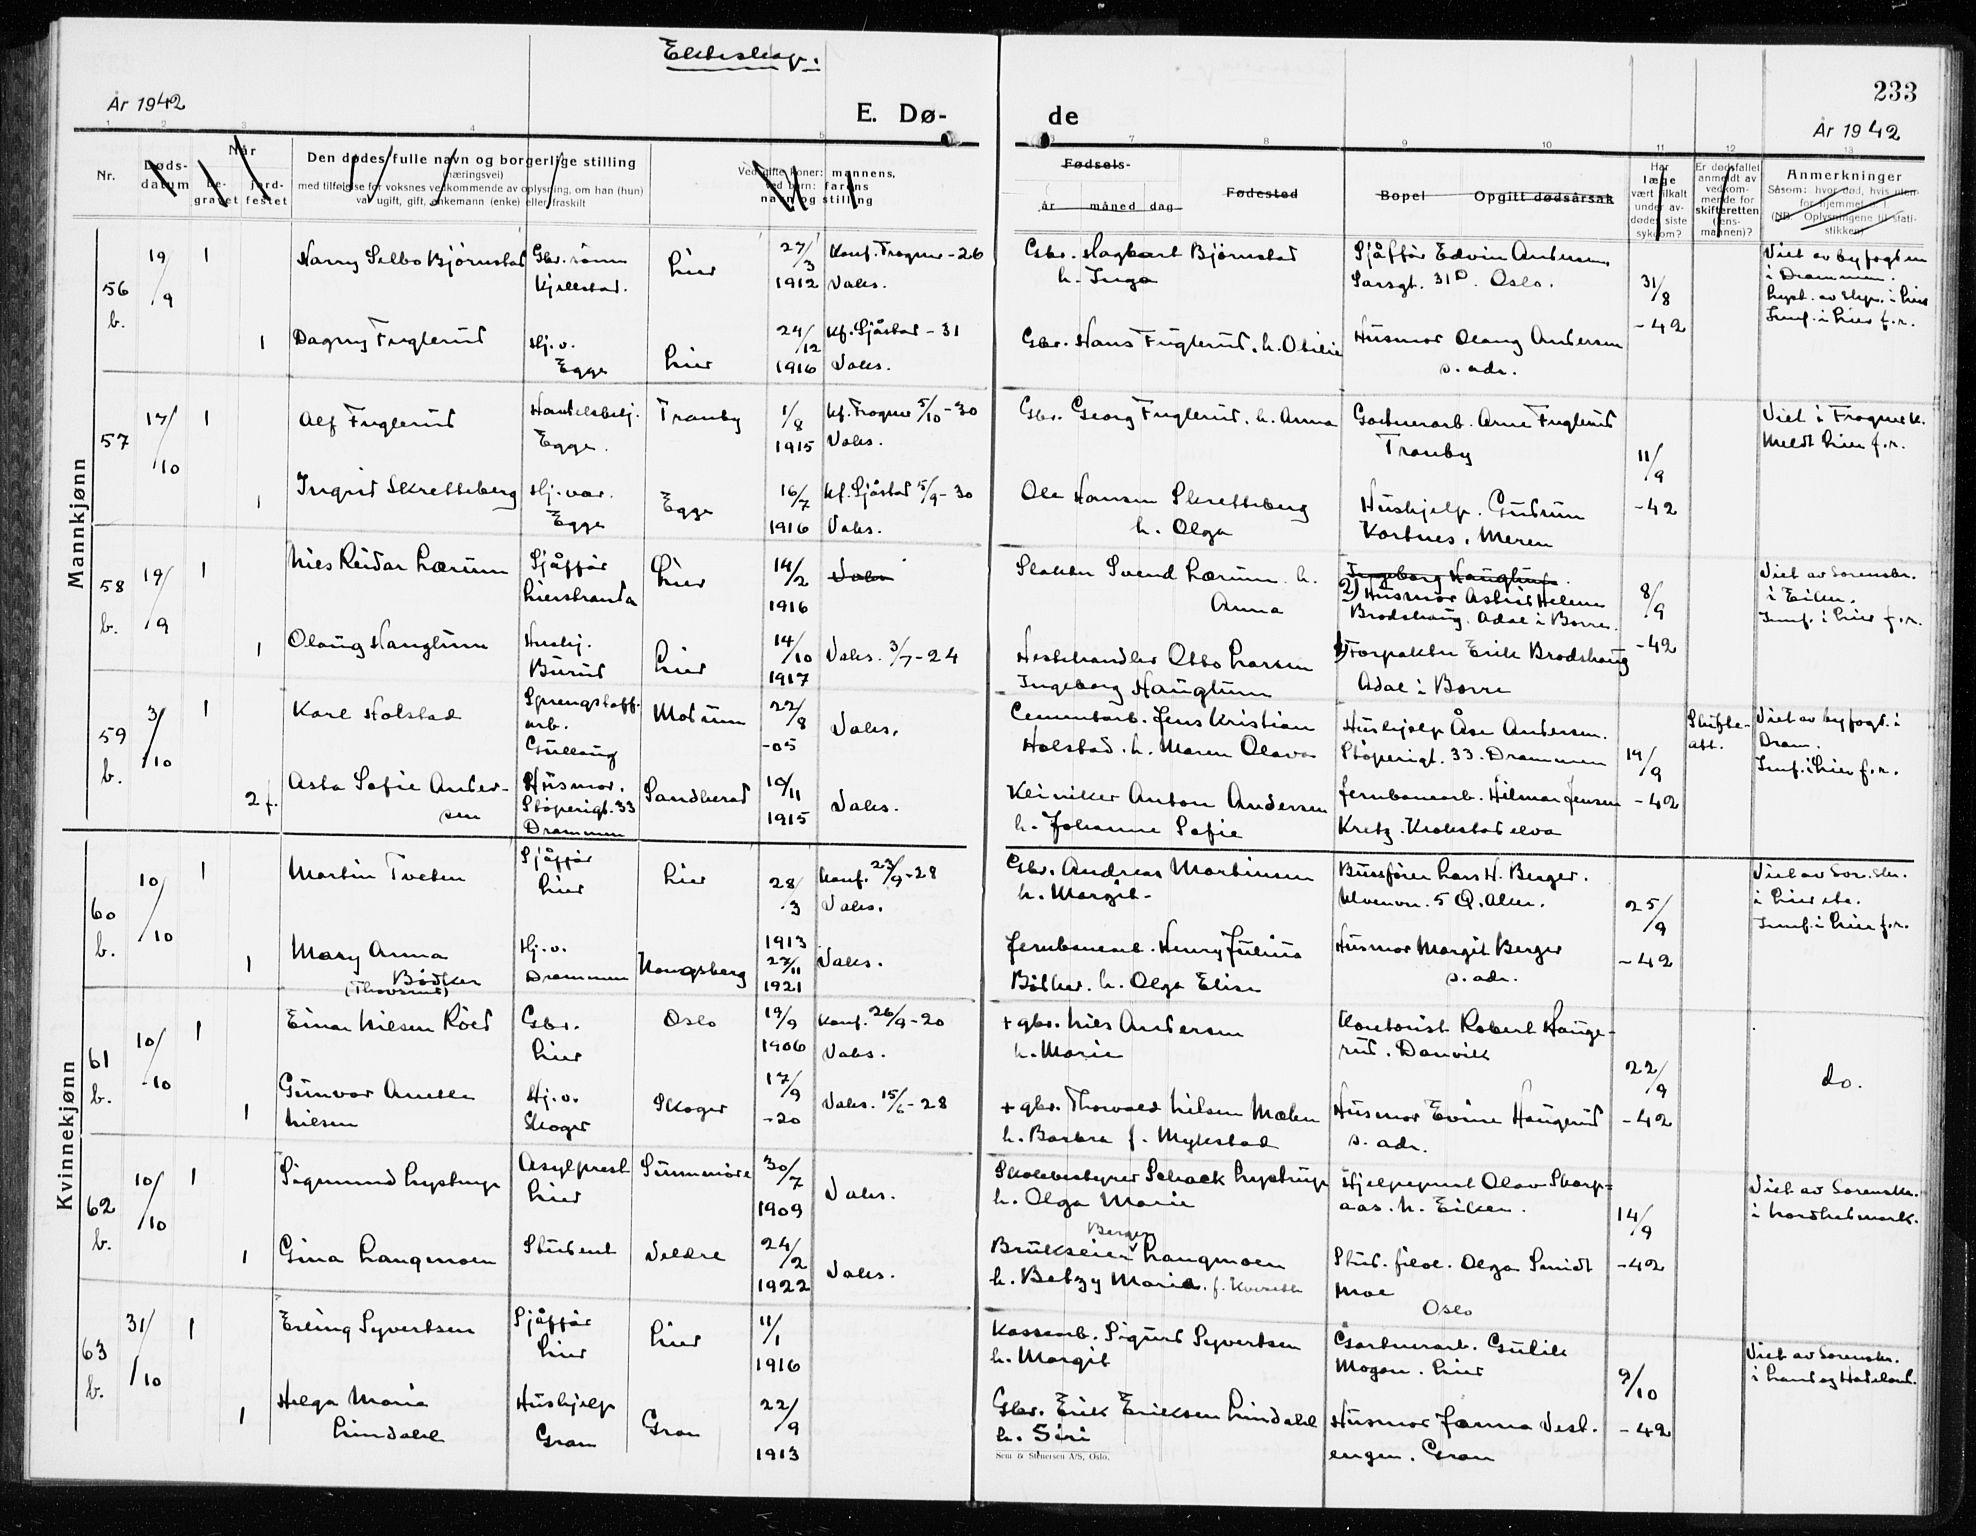 Ekteskap.
År 1942
E. Dø-
de
233
År 1942
Nr.
Døds-
datum
Når
be-
gravet
jord-
festet
Den dødes fulle navn og borgerlige stilling
(næringsvei)
med tilføielse for voksnes vedkommende av oplysning, om han (hun)
var ugift, gift, enkemann (enke) eller fraskilt
Ved gifte koner: mannens,
ved barn: farens
navn og stilling
Fødsels-
år måned dag
Fødested
Bopel
Opgitt dødsårsak
Har
læge
vært tilkalt
under av-
dødes siste
sykdom?
Er dødsfallet
anmeldt av
vedkom-
mende for
skifteretten
(lens-
mannen)?
Anmerkninger
Såsom: hvor død, hvis uten-
for hjemmet
(NB. Oplysningene til stati-
stikken)
Mannkjønn
56 b.
19/9
1
Harry Selbo Bjørnstad
Gbr. sønn
Kjellstad.
Lier
27/3
1912
Konf. Frogner - 26
Vaks.
Gbr. Hagbart Bjørnstad
h. Inga
Sjåffør Edvin Andersen,
Sarsgt. 31D. Oslo.
31/8
- 42
Viet av byfogden
i Drammen.
Lyst. av Skpr. i Lier
Innf. i Lier f.r.
1
Dagny Fuglerud
Hj.v.
Egge
Lier
24/12
1916
Kf. Sjåstad - 31
Vaks.
Gbr. Hans Fuglerud, h. Otilie
Husmor Olaug Andersen
s. adr.
57
17/10
1
Alf Fuglerud
Handelsbetj.
Egge.
Tranby
1/8
1915
Kf. Frogner 5/10 - 30
Vaks.
Gbr. Georg Fuglerud, h. Anna
Gartnerarb. Arne Fuglerud
Tranby
11/9
- 42
Viet i Frogner k.
Meldt Lier f.r.
1
Ingrid Skretteberg
Hj.vær.
Egge
Egge
16/7
1916
Kf. Sjåstad 5/9 - 30
Vaks.
Ole Hansen Skretteberg
h. Olga
Hushjelp. Gudrun
Kortnes, Meren
58 b.
19/9
1
Nils Reidar Lærum
Sjåffør
Lierstranda
Lier
14/2
1916
Vaks
Slakter Svend Lærum. h.
Anna
Ingeborg Hauglum.
2) Husmor Astrid Helene
Brodshaug. Adal i Borre.
8/9
- 42
Viet av Sorenskr.
i Eiker.
Innf. i Lier f.r.
1
Olaug Hauglum
Hushj.
Burud
Lier
14/10
1917
Vaks. 3/7 - 24
Hestehandler Otto Larsen
Ingeborg Hauglum
1) Forpakter Erik Brodshaug
Adal i Borre
59 b.
3/10
1
Karl Holstad
Sprengstoff-
arb.
Gullaug
Modum
22/8
-05
Vaks.
Cementarb. Jens Kristian
Holstad. h. Maren Olava
Hushjelp Åse Andersen.
Støperigt. 33. Drammen
19/9
- 42
Skifte-
att.
Viet av byfogd. i
Dram.
Innf. i Lier f.r.
2 f.
Asta Sofie Ander-
sen
Husmor.
Støperigt. 33
Drammen
Sandherad
10/11
1915
Vaks.
Kliniker Anton Andersen
h. Johanne Sofie
Jernbanearb. Hilmar Jensen
Kretz. Krokstadelva
Kvinnekjønn
60 b.
10/10
1
Martin Tveten
Sjåffør
Lier
Lier
28/3
1913
Konf. 23/9 - 28
Vaks.
Gbr. Andreas Martinsen
h. Margit.
Bussfører Lars H. Berger.
Ulvenvn. 5 Q. Aker.
25/9
- 42
Viet av Sor.skr.
i Lier etc.
Innf. i Lier f.r.
1
Mary Anna
Bødker
(Thorsrud)
Hj.v.
Drammen
Kongsberg
27/11
1921
Vaks.
Jernbanearb. Henry Julius
Bødker. h. Olga Elise
Husmor Margit Berger
s. adr.
61 b.
10/10
1
Einar Nilsen Røed
Gbr.
Lier
Oslo
19/9
1906
Konf. 26/9 - 20
Vaks.
+ gbr. Nils Andersen
h. Marie
Kontorist Robert Hauge-
rud. Danvik
22/9
- 42
do.
1
Gunvor Anette
Nilsen
Hj.v.
Skoger
Skoger
17/9
-20
Vaks. 15/6 - 28
+ gbr. Thorvald Nilsen Mælen
h. Barbra f. Myhstad
Husmor Evine Haugerud
s. adr.
62 b.
10/10
1
Sigmund Lystrup
Asylprest
Lier
Sunnmøre
30/7
1909
Vaks.
Skolebestyrer Schack Lystrup
h. Olga Marie
Hjelpeprest Olav Skorp=
aas. N. Eiker.
14/9
- 42
Viet av Sorenskr.
i Nordhedmark.
1
Gina Langmoen
Student
Veldre
24/2
1922
Vaks.
Brukseier Berger Langmoen
h. Betzy Maria. f. Kverstle
Stud. filol. Olga Smidt
Moe
Oslo
63 b.
31/10
1
Erling Syvertsen
Sjåffør
Lier
Lier
11/1
1916
Kassearb. Sigurd Syvertsen
h. Margit
Gartnerarb. Gulik
Mogan. Lier
9/10
- 42
Viet av Sorenskr.
i Land og Hadeland.
1
Helga Maria
Lindahl
Hushjelp
Gran
Gran
22/9
1913
Gbr. Erik Eriksen Lindahl
h. Siri
Husmor Janna Vest-
engen. Gran
Sem & Stenersen A/S, Oslo.